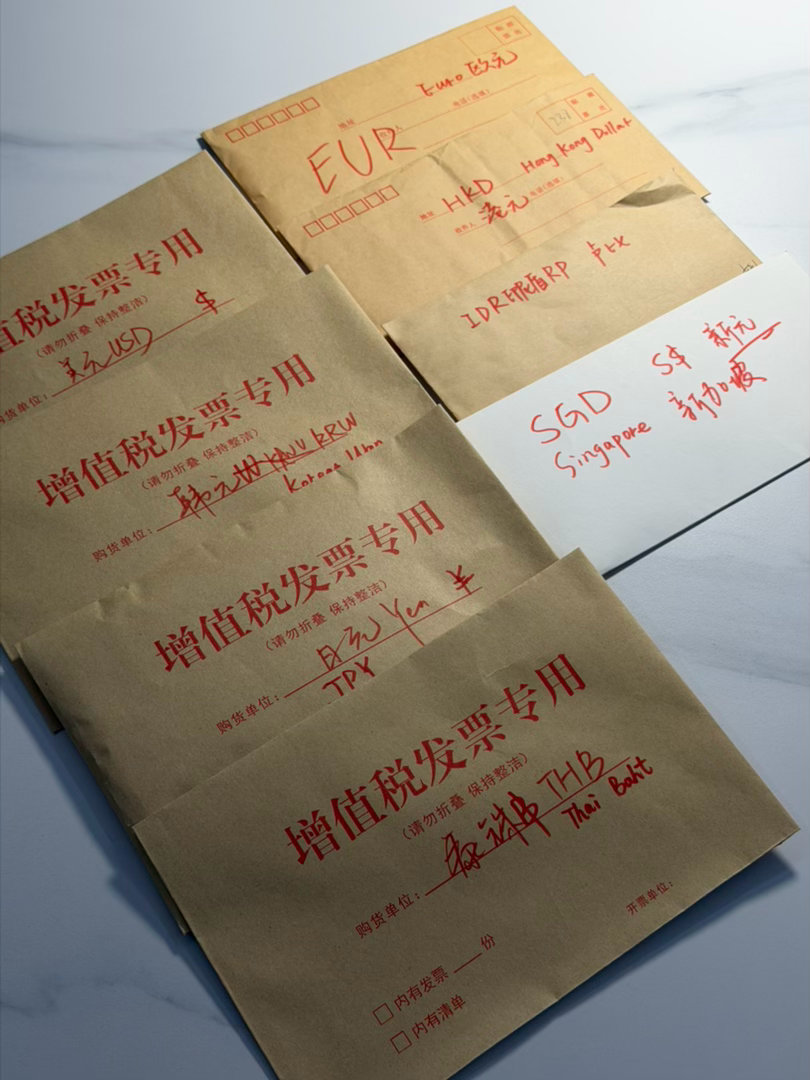 贴 邮
票 处
Euro 欧元
地址
电话(选填)
EUR
贴 邮
票 处
237
Hong Kong Dollar
地址
HKD
电话(选填)
收件人
港元
IDR 印尼盾 RP
SGD S$ 新元
Singapore 新加坡
值税发票专用
(请勿折叠 保持整洁)
购货单位:
美元 USD $
增值税发票专用
(请勿折叠 保持整洁)
购货单位:
韩元 KRW
增值税发票专用
(请勿折叠 保持整洁)
购货单位:
日元 Yen ¥
JPY
增值税发票专用
(请勿折叠 保持整洁)
购货单位:
泰铢 THB
Thai Baht
开票单位:
内有发票 份
内有清单